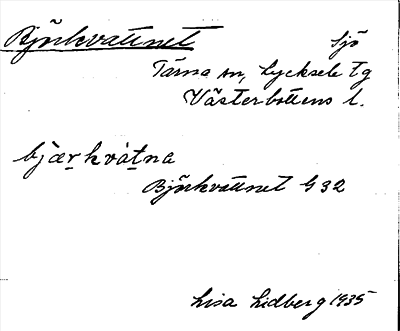 Björkvattnet Sjö
Tärna sn, Lycksele tg
Västerbottens l.
bjær̲kvàt̲na
Björkvattnet G 32
Lisa Lidberg 1935